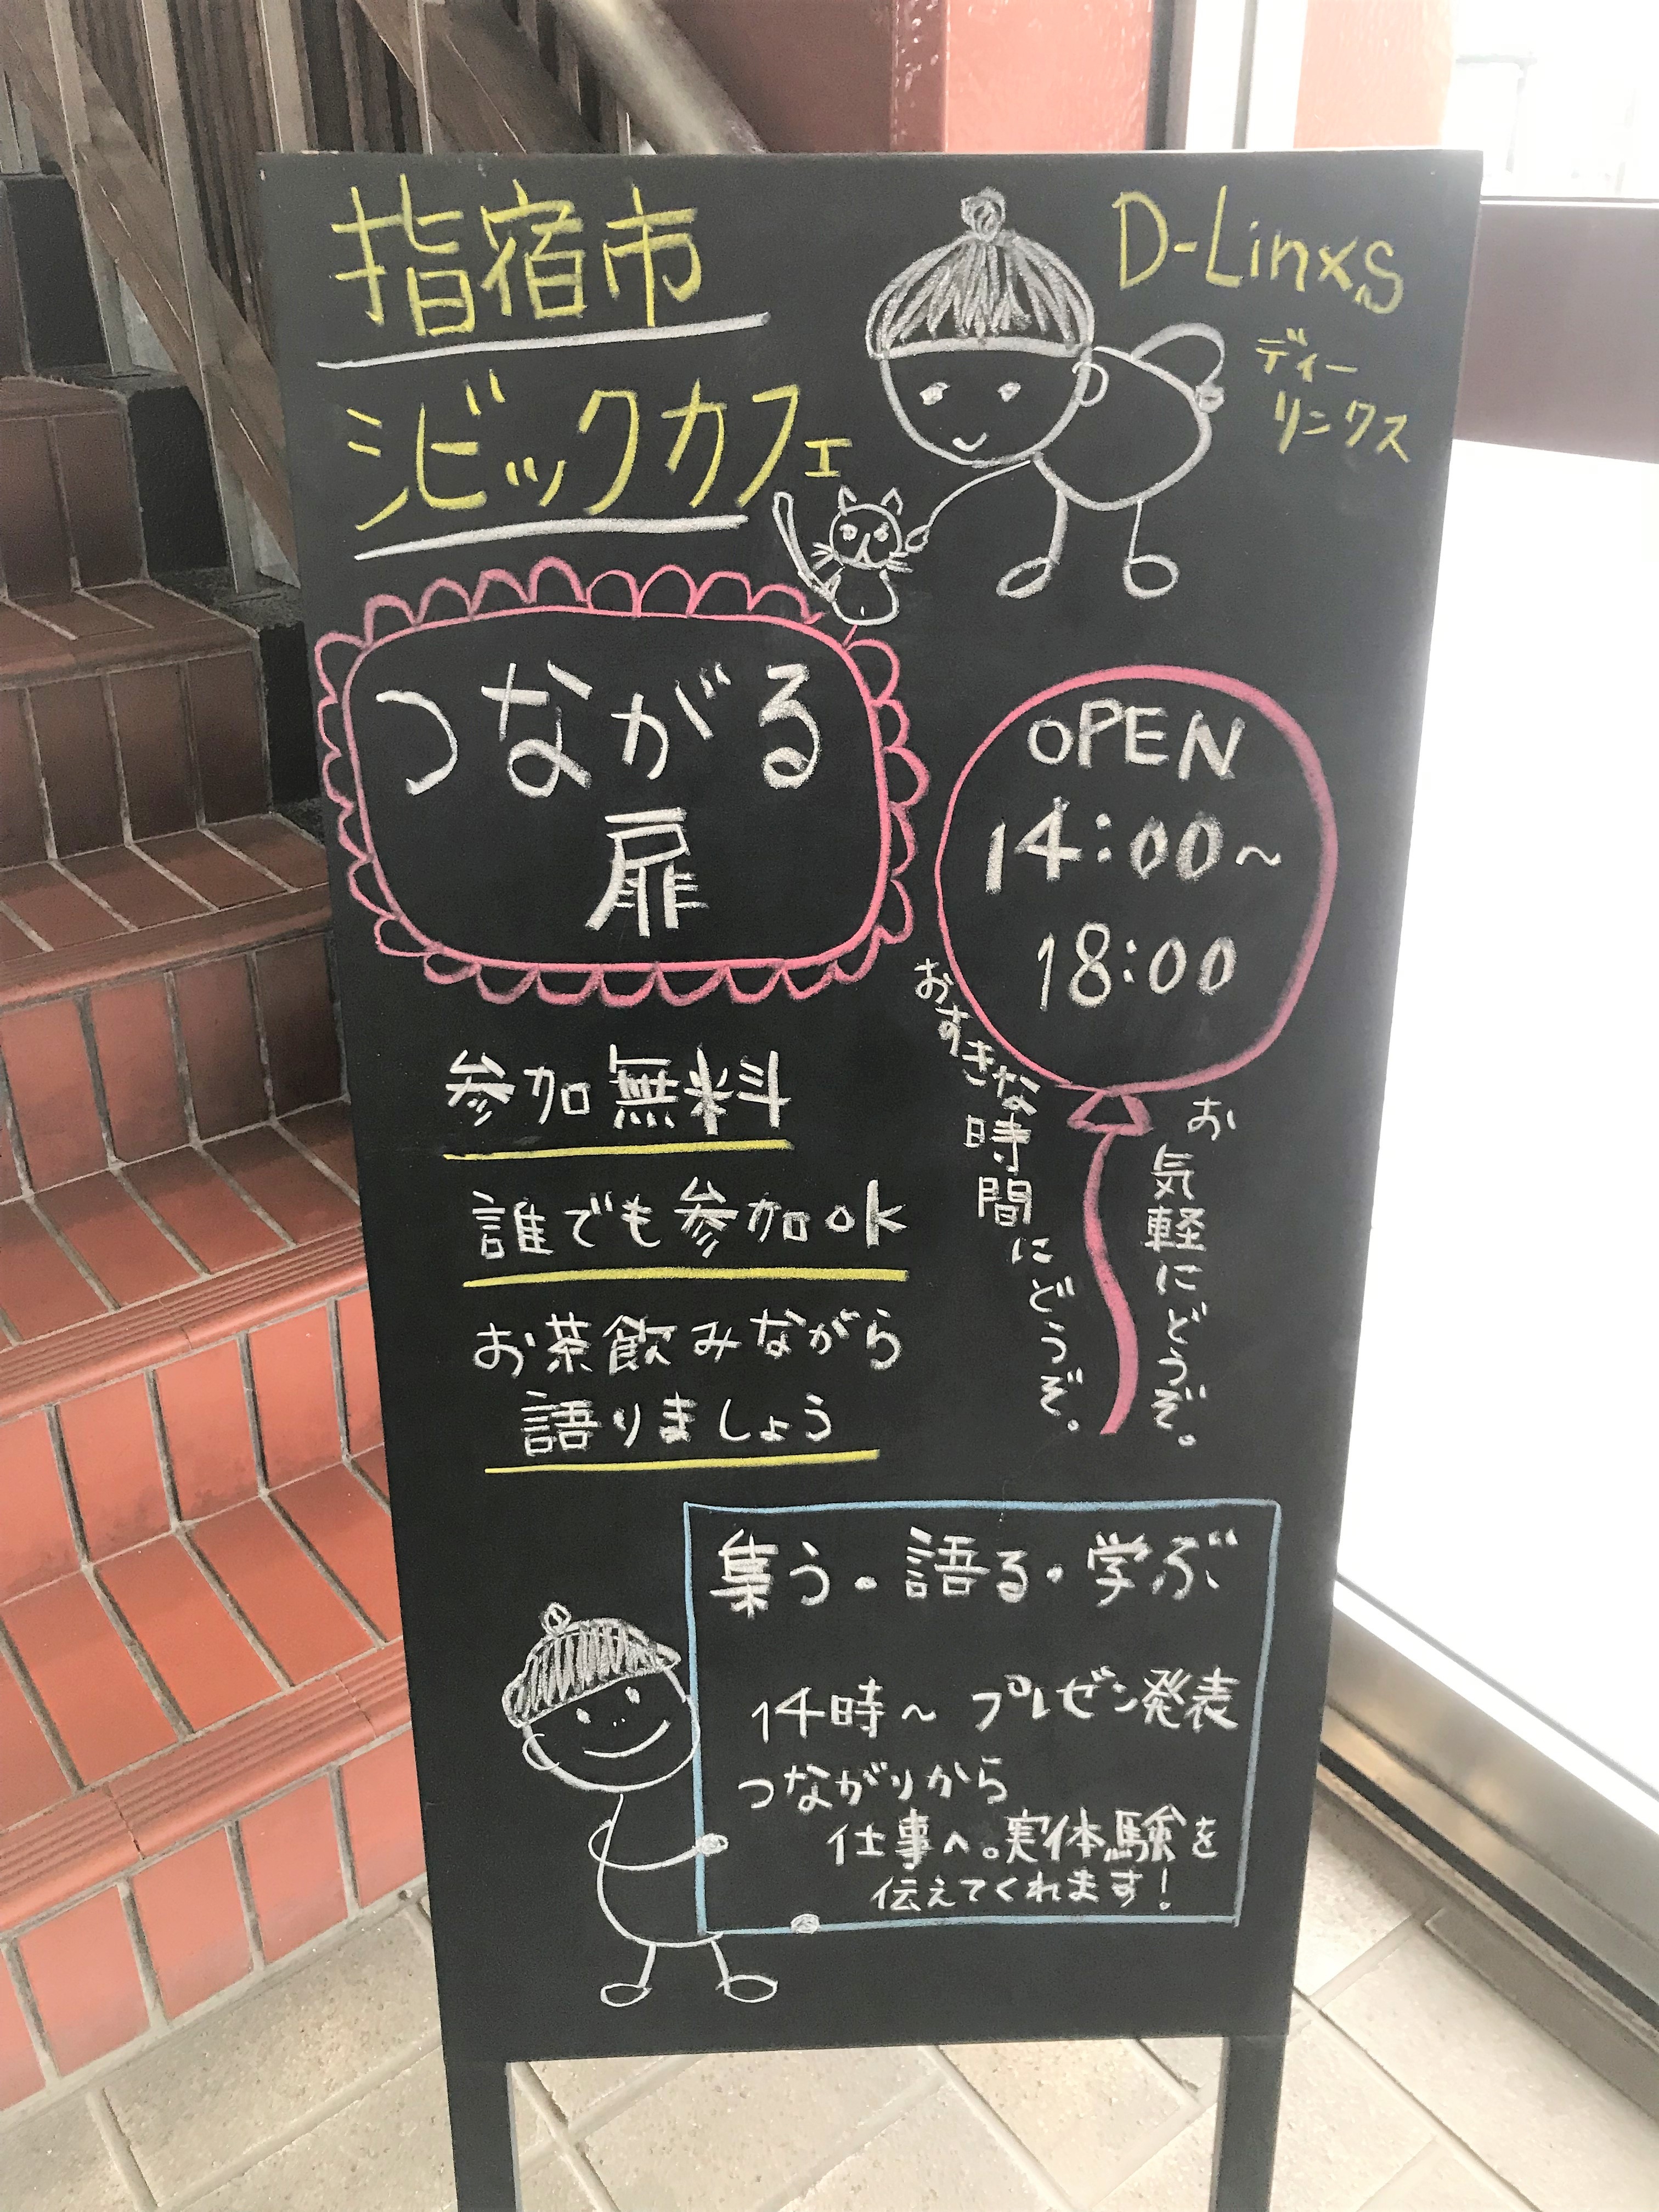 指宿市
シビックカフェ
D-Linxs
ディー
リンクス
つながる
扉
OPEN
14:00~
18:00
おすきな時間にどうぞ。
お気軽にどうぞ。
参加無料
誰でも参加ok
お茶飲みながら
語りましょう
集う・語る・学ぶ
14時~プレゼン発表
つながりから
仕事へ。実体験を
伝えてくれます!